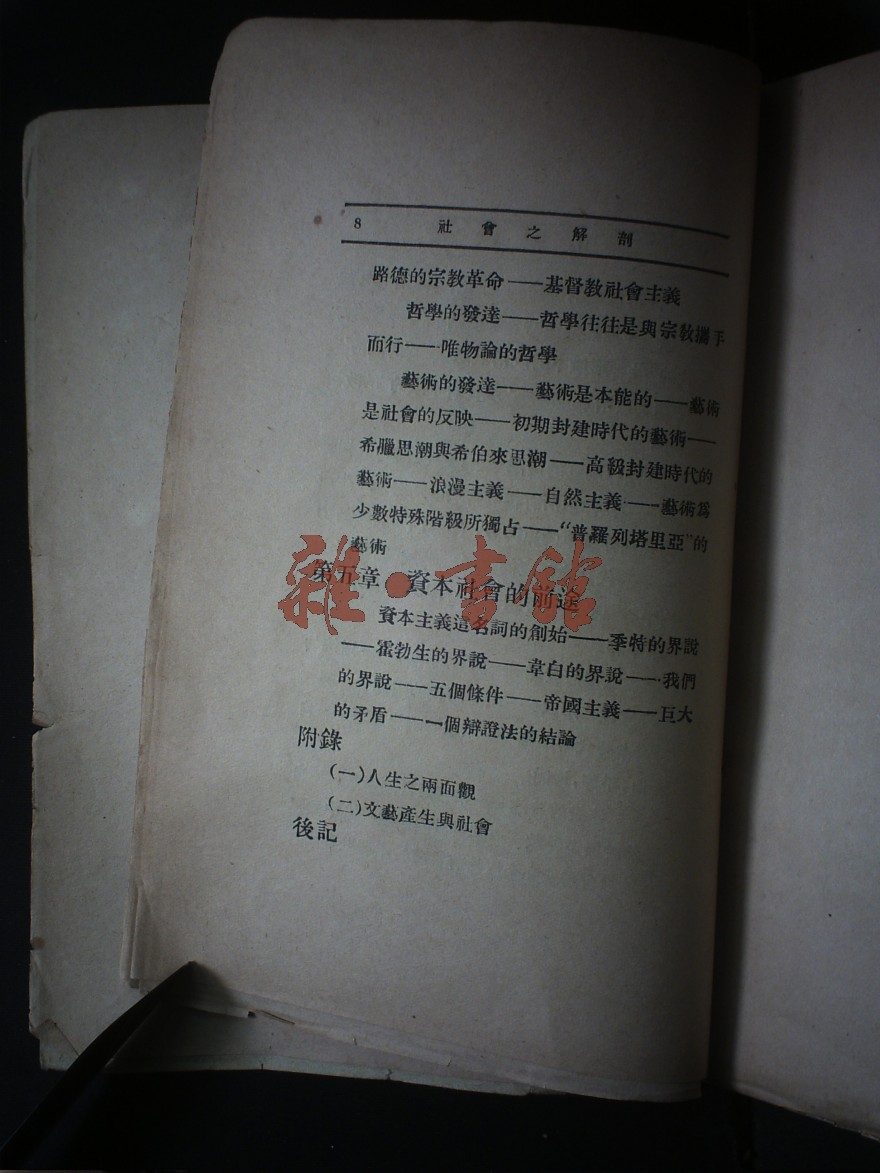 8 社會之解剖
路德的宗教革命——基督教社會主義
哲學的發達——哲學往往是與宗教攜手
而行——唯物論的哲學
藝術的發達——藝術是本能的——藝術
是社會的反映——初期封建時代的藝術——
希臘思潮與希伯來思潮——高級封建時代的
藝術——浪漫主義——自然主義——藝術爲
少數特殊階級所獨占——“普羅列塔里亞”的
藝術
第五章 資本社會的前途
資本主義這名詞的創始——季特的界說
——霍勃生的界說——韋白的界說——我們
的界說——五個條件——帝國主義——巨大
的矛盾——一個辯證法的結論
附錄
(一)人生之兩面觀
(二)文藝產生與社會
後記
雜·書館